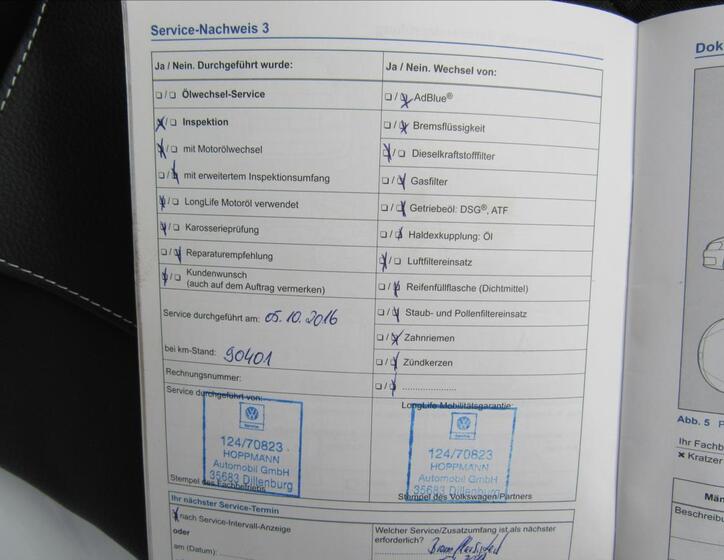 Service-Nachweis 3
Ja / Nein. Durchgeführt wurde:
❑/❑ Ölwechsel-Service
❑/❑ Inspektion
❑/❑ mit Motorölwechsel
❑/❑ mit erweitertem Inspektionsumfang
❑/❑ LongLife Motoröl verwendet
❑/❑ Karosserieprüfung
❑/❑ Reparaturempfehlung
❑/❑ Kundenwunsch
(auch auf dem Auftrag vermerken)
Service durchgeführt am: 05.10.2016
bei km-Stand: 90401
Rechnungsnummer:
Service durchgeführt von:
Service
124/70823
HOPPMANN
Automobil GmbH
35683 Dillenburg
Stempel des Fachbetriebs
Ja / Nein. Wechsel von:
❑/❑ AdBlue®
❑/❑ Bremsflüssigkeit
❑/❑ Dieselkraftstofffilter
❑/❑ Gasfilter
❑/❑ Getriebeöl: DSG®, ATF
❑/❑ Haldexkupplung: Öl
❑/❑ Luftfiltereinsatz
❑/❑ Reifenfüllflasche (Dichtmittel)
❑/❑ Staub- und Pollenfiltereinsatz
❑/❑ Zahnriemen
❑/❑ Zündkerzen
❑/❑ ......................
LongLife Mobilitätsgarantie:
Service
124/70823
HOPPMANN
Automobil GmbH
35683 Dillenburg
Stempel des Volkswagen Partners
Ihr nächster Service-Termin
❑ nach Service-Intervall-Anzeige
oder
am (Datum):
Welcher Service/Zusatzumfang ist als nächster
erforderlich?
Dok
Abb. 5
Ihr Fachb
✖ Kratzer
Män
Beschreibu